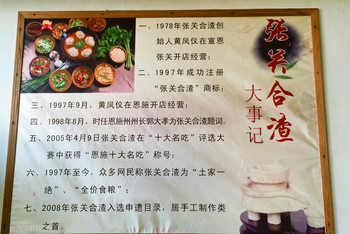 一、1978年张关合渣创
始人黄凤仪在宣恩
张关开店经营;
二、1997年成功注册
“张关合渣”商标;
三、1997年9月,黄凤仪在恩施开店经营;
四、1998年8月,时任恩施州州长郭大孝为张关合渣题词.
五、2005年4月9日张关合渣在“十大名吃”评选大
赛中获得“恩施十大名吃”称号;
六、1997年至今,众多网民称张关合渣为“土家一
绝”、“全价食粮”;
七、2008年张关合渣入选申遗目录,居手工制作类
之首.
张关合渣
大事记